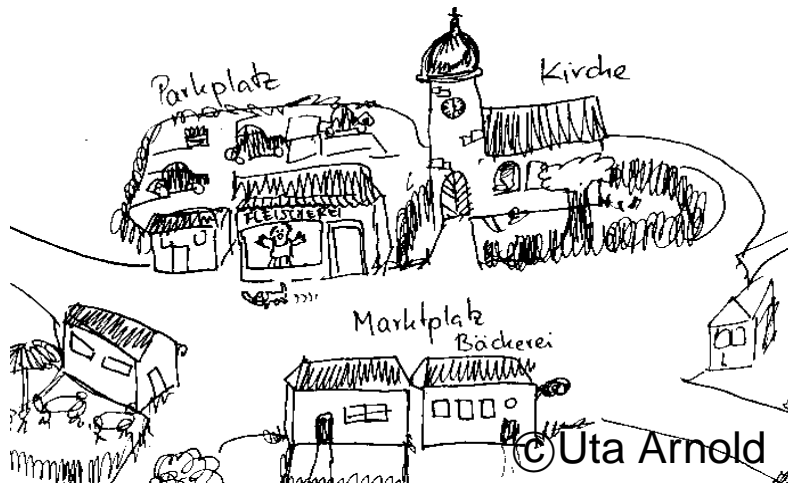 Parkplatz
Kirche
FLEISCHEREI
Marktplatz
Bäckerei
©Uta Arnold